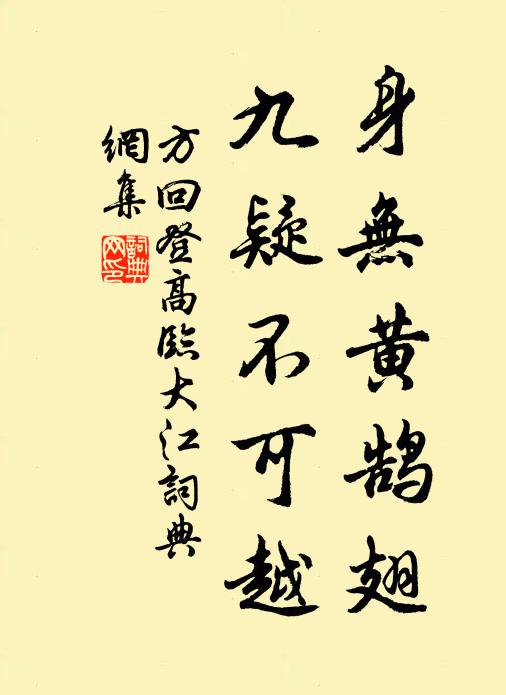 身無黄鹄翅
九疑不可越
方回登高臨大江詞典
網集
詞典網印